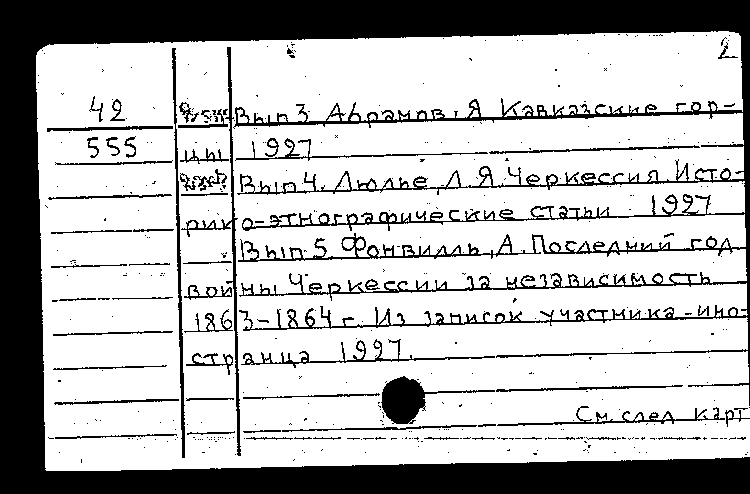 2
42 Вып 3 Абрамов, Я Кавказские гор-
555 цы 1927
Вып 4. Люлье, Л. Я. Черкессия Исто-
рико-этнографические статьи 1927
Вып 5 Фонвилль, А. Последний год
войны Черкессии за независимость
1863-1864 г. Из записок участника-ино-
странца 1927.
См. след карт